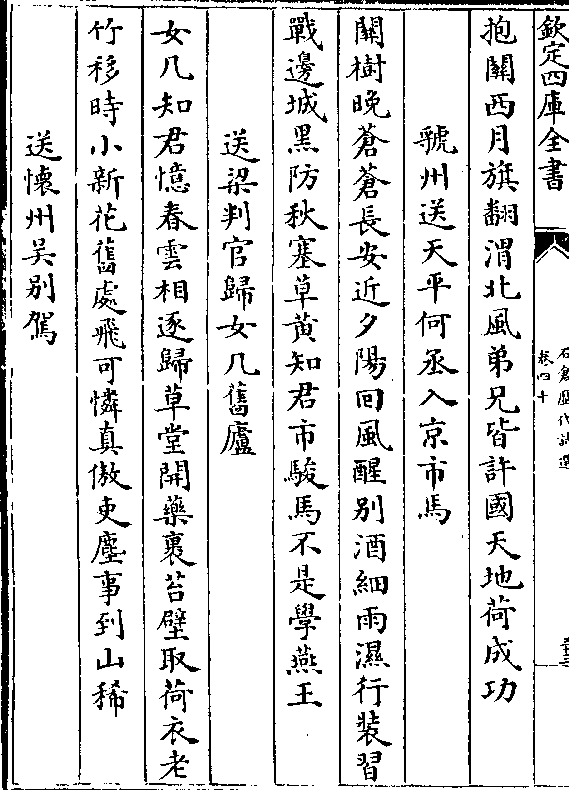 欽定四庫全書
石倉歷代詩選
卷四十
抱關西月旗翻渭北風弟兄皆許國天地荷成功
虢州送天平何丞入京市馬
關樹晚蒼蒼長安近夕陽回風醒别酒細雨濕行裝習
戰邊城黑防秋塞草黃知君市駿馬不是學燕王
送梁判官歸女几舊廬
女几知君憶春雲相逐歸草堂開藥裹苔壁取荷衣老
竹移時小新花舊處飛可憐真傲吏塵事到山稀
送懷州吳别駕